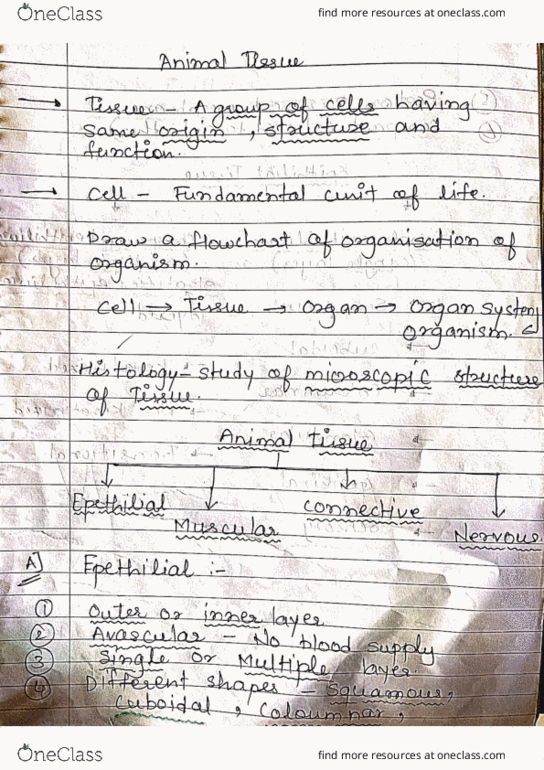 OneClass
find more resources at oneclass.com
Animal Tissue
→ Tissue - A group of cells having
same origin, structure and
function.
→ Cell - Fundamental unit of life.
Draw a flowchart of organisation of
organism.
Cell → Tissue → Organ → Organ System
Organism.
Histology - study of microscopic structure
of Tissue.
Animal Tissue
Epethilial
Muscular
Connective
Nervous.
A] Epethilial :-
① Outer or inner layer
② Avascular - No blood supply
③ Single or Multiple layer.
④ Different shapes - Squamous,
Cuboidal, Coloumnar,
OneClass
find more resources at oneclass.com